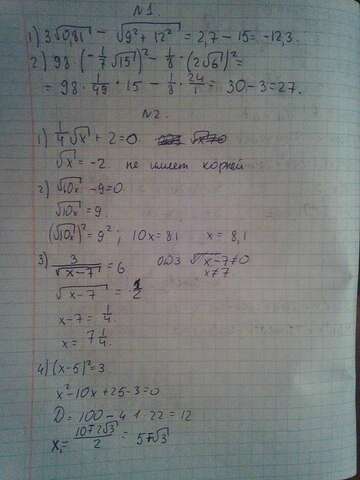 N1.
1) 3√0,81 - √9²+12² = 2,7 - 15 = -12,3.
2) 98·(-1/7√15)² - 1/8·(2√6)² =
= 98·1/49·15 - 1/8·24/1 = 30-3=27.
N2.
1) 1/4√x + 2=0
√x = -2. не имеет корней
2) √10x - 9=0.
√10x = 9.
(√10x)² = 9²; 10x=81 x=8,1
3) 3/√x-7 = 6 ОДЗ √x-7≠0
x≠7
√x-7 = 1/2
x-7 = 1/4.
x= 7 1/4.
4) (x-5)²=3
x²-10x+25-3=0
D= 100-4·1·22=12
x₁= 10∓2√3/2 = 5∓√3